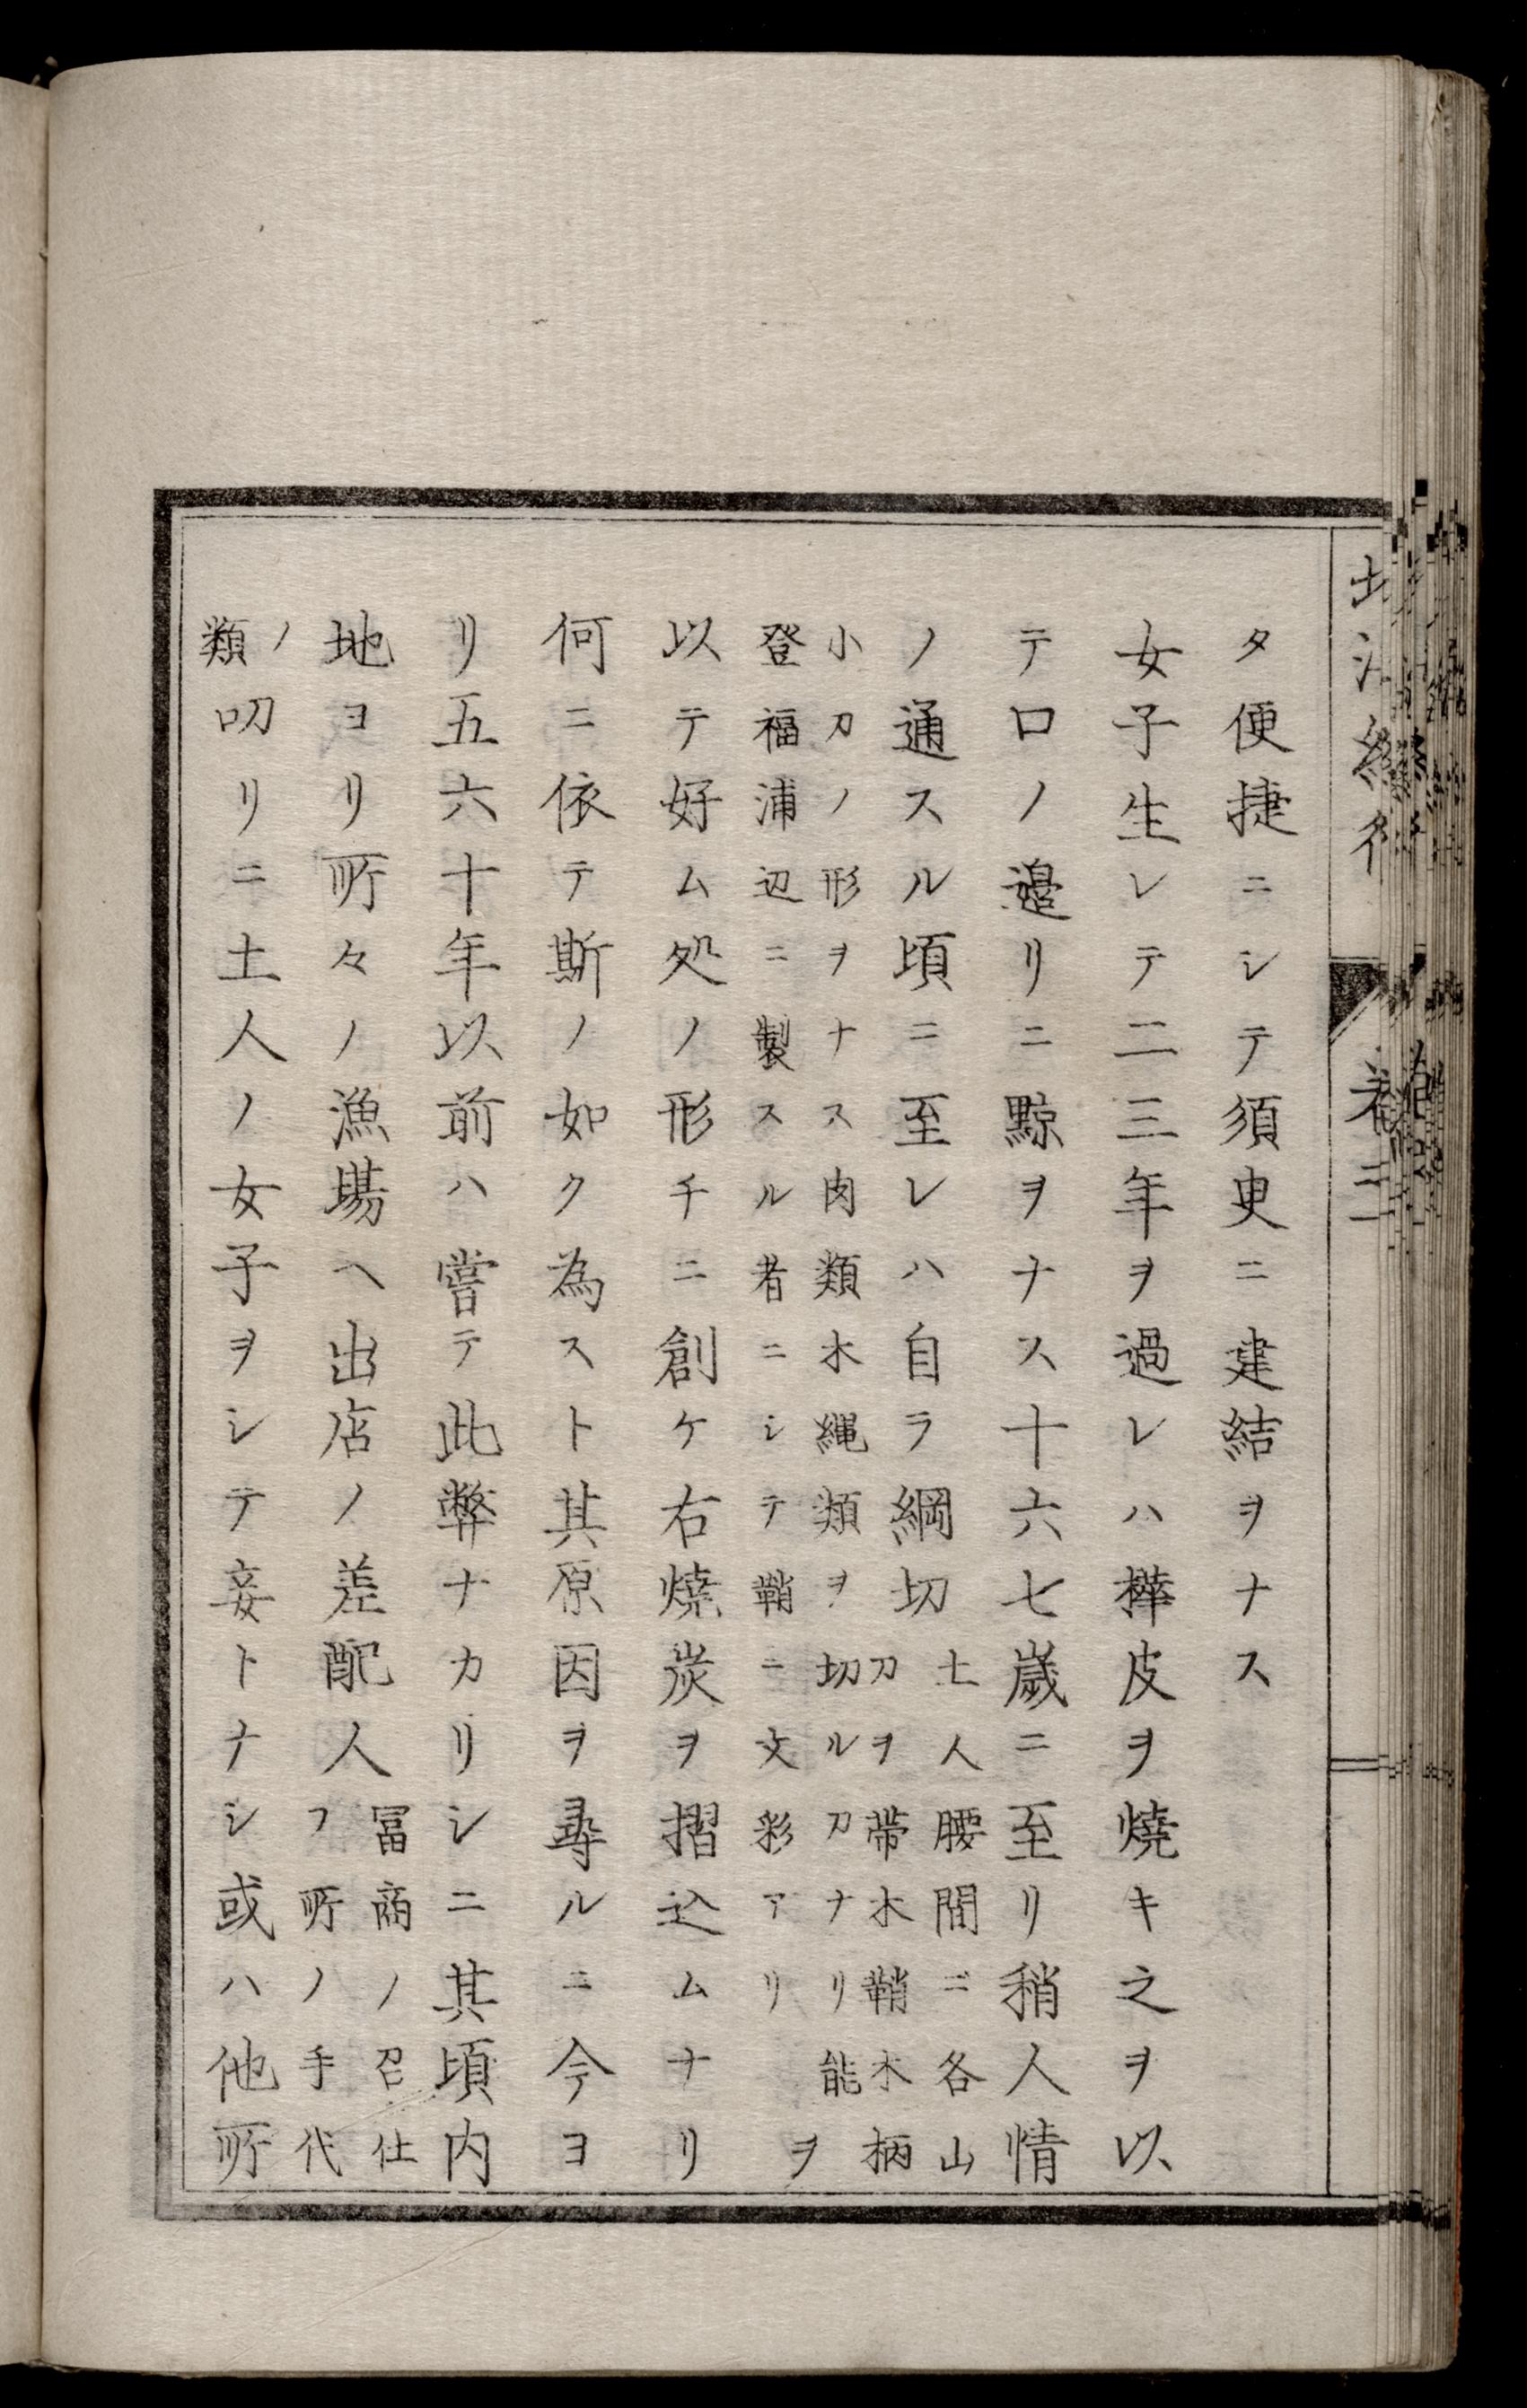 北海紀行　卷三
タ便捷ニシテ須臾ニ建結ヲナス
女子生レテ二三年ヲ過レハ樺皮ヲ燒キ之ヲ以
テ口ノ邊リニ黥ヲナス十六七歳ニ至リ稍人情
ノ通スル頃ニ至レハ自ラ綱切
土人腰間ニ各山
刀ヲ帯木鞘木柄
小刀ノ形ヲナス肉類木縄類ヲ切ル刀ナリ能
登福浦辺ニ製スル者ニシテ鞘ニ文彩アリ
ヲ
以テ好ム処ノ形チニ創ケ右燒炭ヲ摺込ムナリ
何ニ依テ斯ノ如ク為スト其原因ヲ尋ルニ今ヨ
リ五六十年以前ハ嘗テ此弊ナカリシニ其頃内
地ヨリ所々ノ漁場ヘ出店ノ差配人
冨商ノ召仕
フ所ノ手代
ノ
類
叨リニ土人ノ女子ヲシテ妾トナシ或ハ他所